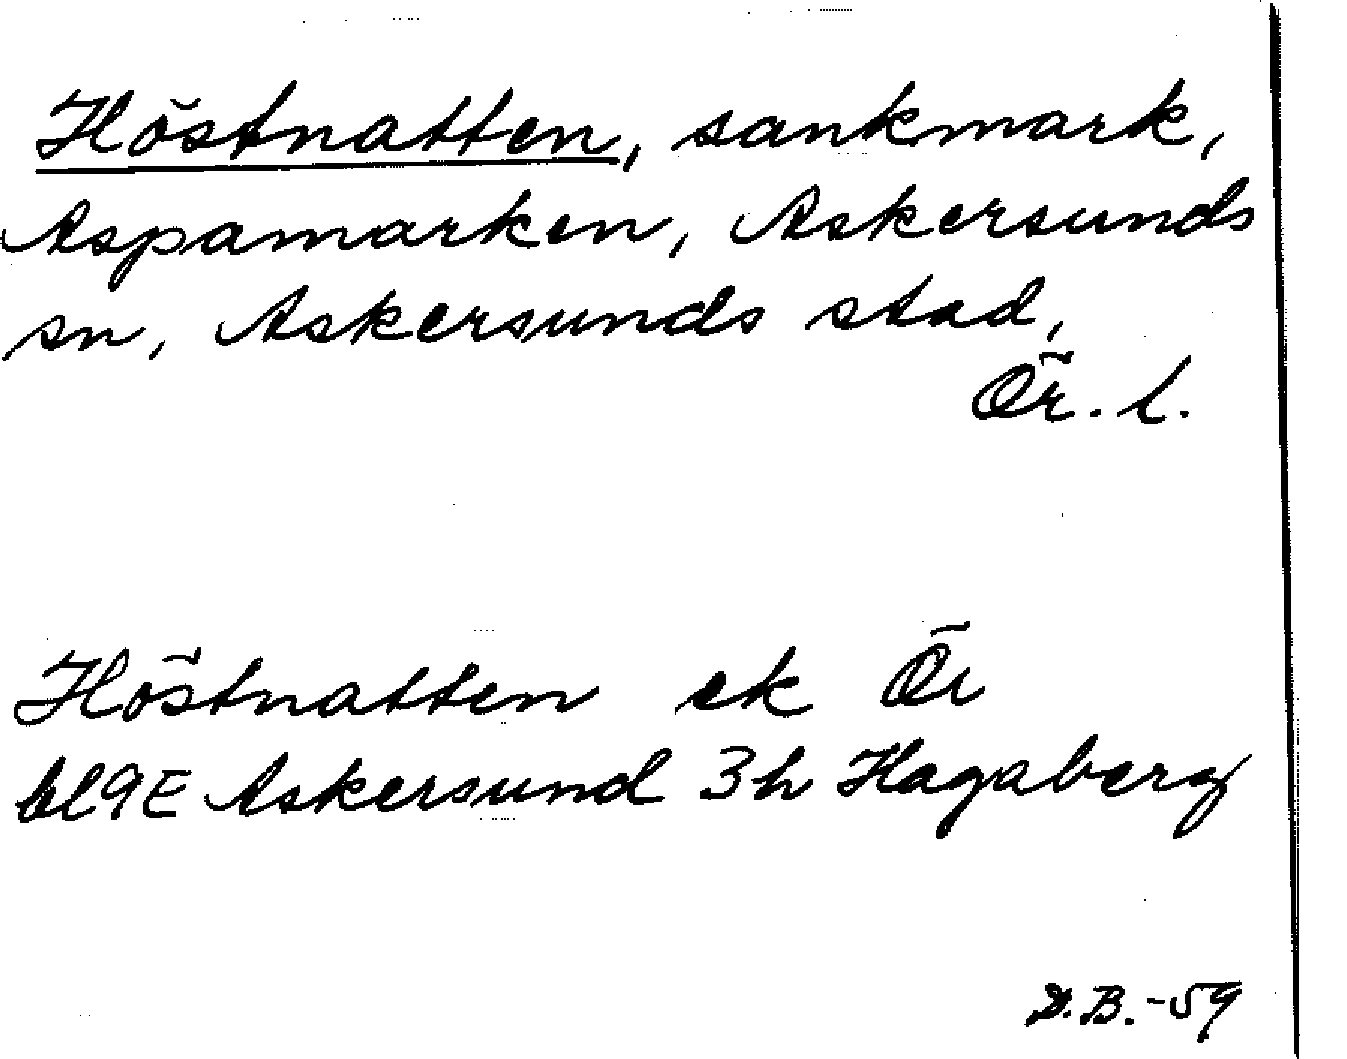 Höstnatten, sankmark,
Aspamarken, Askersunds
sn, Askersunds stad,
Ör. l.
Höstnatten ek Ör
bl 9E Askersund 3h Hagaberg
D.B.-59